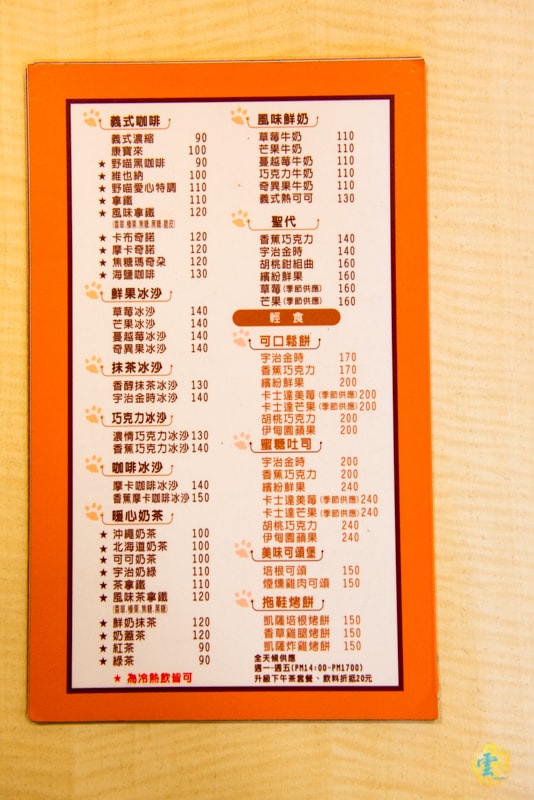 義式咖啡
義式濃縮 90
康寶來 100
★ 野喵黑咖啡 90
★ 維也納 100
★ 野喵愛心特調 110
★ 拿鐵 110
★ 風味拿鐵 120
★ 卡布奇諾 120
★ 摩卡奇諾 120
★ 焦糖瑪奇朵 120
★ 海鹽咖啡 130
鮮果冰沙
草莓冰沙 140
芒果冰沙 140
蔓越莓冰沙 140
奇異果冰沙 140
抹茶冰沙
香醇抹茶冰沙 130
宇治金時冰沙 140
巧克力冰沙
濃情巧克力冰沙 130
香蕉巧克力冰沙 140
咖啡冰沙
摩卡咖啡冰沙 140
香蕉摩卡咖啡冰沙 150
暖心奶茶
★ 沖繩奶茶 100
★ 北海道奶茶 100
★ 可可奶茶 100
★ 宇治奶綠 110
★ 茶拿鐵 110
★ 風味茶拿鐵 120
★ 鮮奶抹茶 120
★ 奶蓋茶 120
★ 紅茶 90
★ 綠茶 90
★ 為冷熱飲皆可
風味鮮奶
草莓牛奶 110
芒果牛奶 110
蔓越莓牛奶 110
巧克力牛奶 110
奇異果牛奶 110
義式熱可可 130
聖代
香蕉巧克力 140
宇治金時 140
胡桃甜組曲 160
繽紛鮮果 160
草莓(季節供應) 160
芒果(季節供應) 160
輕食
可口鬆餅
宇治金時 170
香蕉巧克力 170
繽紛鮮果 200
卡士達美莓(季節供應) 200
卡士達芒果(季節供應) 200
胡桃巧克力 200
伊甸園蘋果 200
蜜糖吐司
宇治金時 200
香蕉巧克力 200
繽紛鮮果 240
卡士達美莓(季節供應) 240
卡士達芒果(季節供應) 240
胡桃巧克力 240
伊甸園蘋果 240
美味可頌堡
培根可頌 150
煙燻雞肉可頌 150
拖鞋烤餅
凱薩培根烤餅 150
香草雞腿烤餅 150
凱薩炸雞烤餅 150
全天候供應
週一~週五(PM14:00-PM1700)
升級下午茶套餐、飲料折抵20元
雲